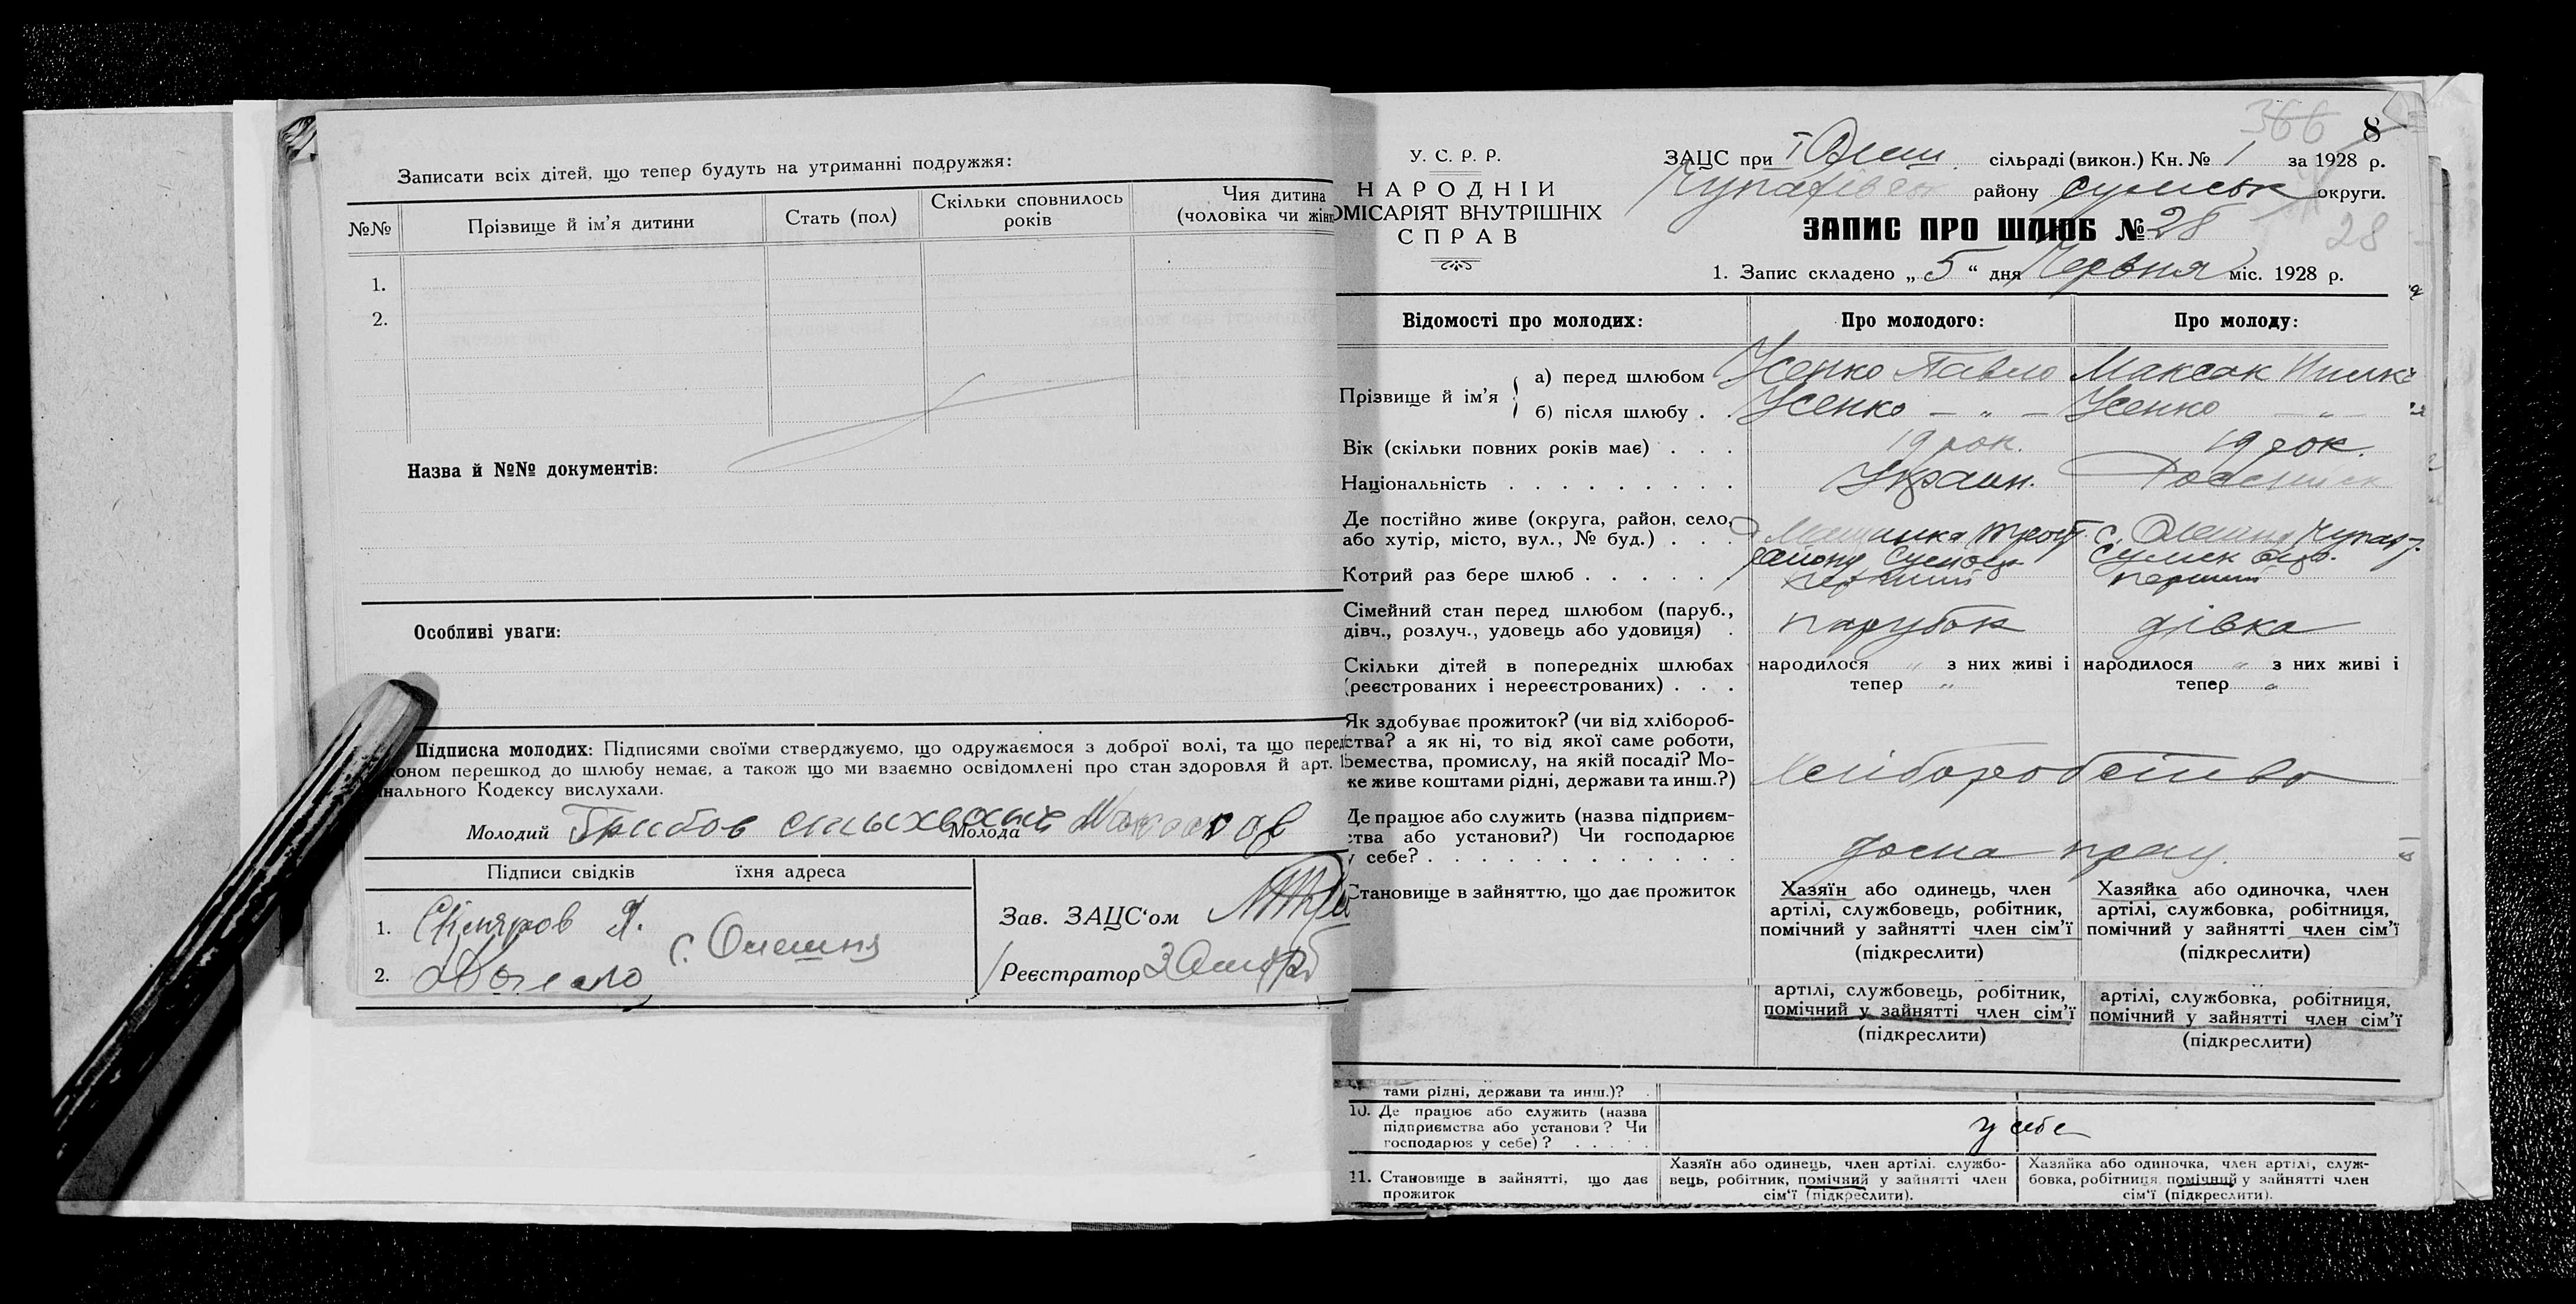 Записати всіх дітей, що тепер будуть на утриманні подружжя:
№№
Прізвище й ім'я дитини
Стать (пол)
Скільки сповнилось
років
Чия дитина
(чоловіка чи жін
1.
2.
Назва й №№ документів:
Особливі уваги:
Підписка молодих: Підписями своїми стверджуємо, що одружаємося з доброї волі, та що перед
коном перешкод до шлюбу немає, а також що ми взаємно освідомлені про стан здоров'я й арт.
нального Кодексу вислухали.
Молодий
Молода
Підписи свідків
їхня адреса
1.
2.
с. Олешня
Зав. ЗАЦС'ом
Реєстратор
366
8
У. С. Р. Р.
НАРОДНІЙ
ОМІСАРІЯТ ВНУТРІШНІХ
СПРАВ
ЗАЦС при І Олеш. сільраді (викон.) Кн. № 1 за 1928 р.
району Сумськ округи.
ЗАПИС ПРО ШЛЮБ № 28
28
1. Запис складено „ 5 “ дня Червня міс. 1928 р.
Відомості про молодих:
Про молодого:
Про молоду:
Прізвище й ім'я
а) перед шлюбом
Усенко Павло
Максак
б) після шлюбу .
Усенко — „ —
Усенко — „ —
Вік (скільки повних років має) . . .
19 рок.
19 рок.
Національність . . . . . . . . .
Украин.
Де постійно живе (округа, район, село,
або хутір, місто, вул., № буд.) . . .
району
с. Олешня
Котрий раз бере шлюб . . . . .
перший
перший
Сімейний стан перед шлюбом (паруб.,
дівч., розлуч., удовець або удовиця) .
парубок
дівка
Скільки дітей в попередніх шлюбах
(реєстрованих і нереєстрованих) . . .
народилося „ з них живі і
тепер „
народилося „ з них живі і
тепер „
Як здобуває прожиток? (чи від хлібороб-
ства? а як ні, то від якої саме роботи,
ремества, промислу, на якій посаді? Мо-
же живе коштами рідні, держави та инш.?)
Хліборобство
Де працює або служить (назва підприєм-
ства або установи?) Чи господарює
у себе? . . . . . . . . . . . .
Становище в зайняттю, що дає прожиток
Хазяїн або одинець, член
артілі, службовець, робітник,
помічний у зайнятті член сім'ї
(підкреслити)
Хазяйка або одиночка, член
артілі, службовка, робітниця,
помічний у зайнятті член сім'ї
(підкреслити)
артілі, службовець, робітник,
помічний у зайнятті член сім'ї
(підкреслити)
артілі, службовка, робітниця,
помічний у зайнятті член сім'ї
(підкреслити)
тами рідні, держави та инш.)?
10. Де працює або служить (назва
підприємства або установи? Чи
господарює у себе)? . . . . .
у себе
11. Становище в зайнятті, що дає
прожиток
Хазяїн або одинець, член артілі, службо-
вець, робітник, помічний у зайнятті член
сім'ї (підкреслити).
Хазяйка або одиночка, член артілі, служ-
бовка, робітниця, помічний у зайнятті член
сім'ї (підкреслити).